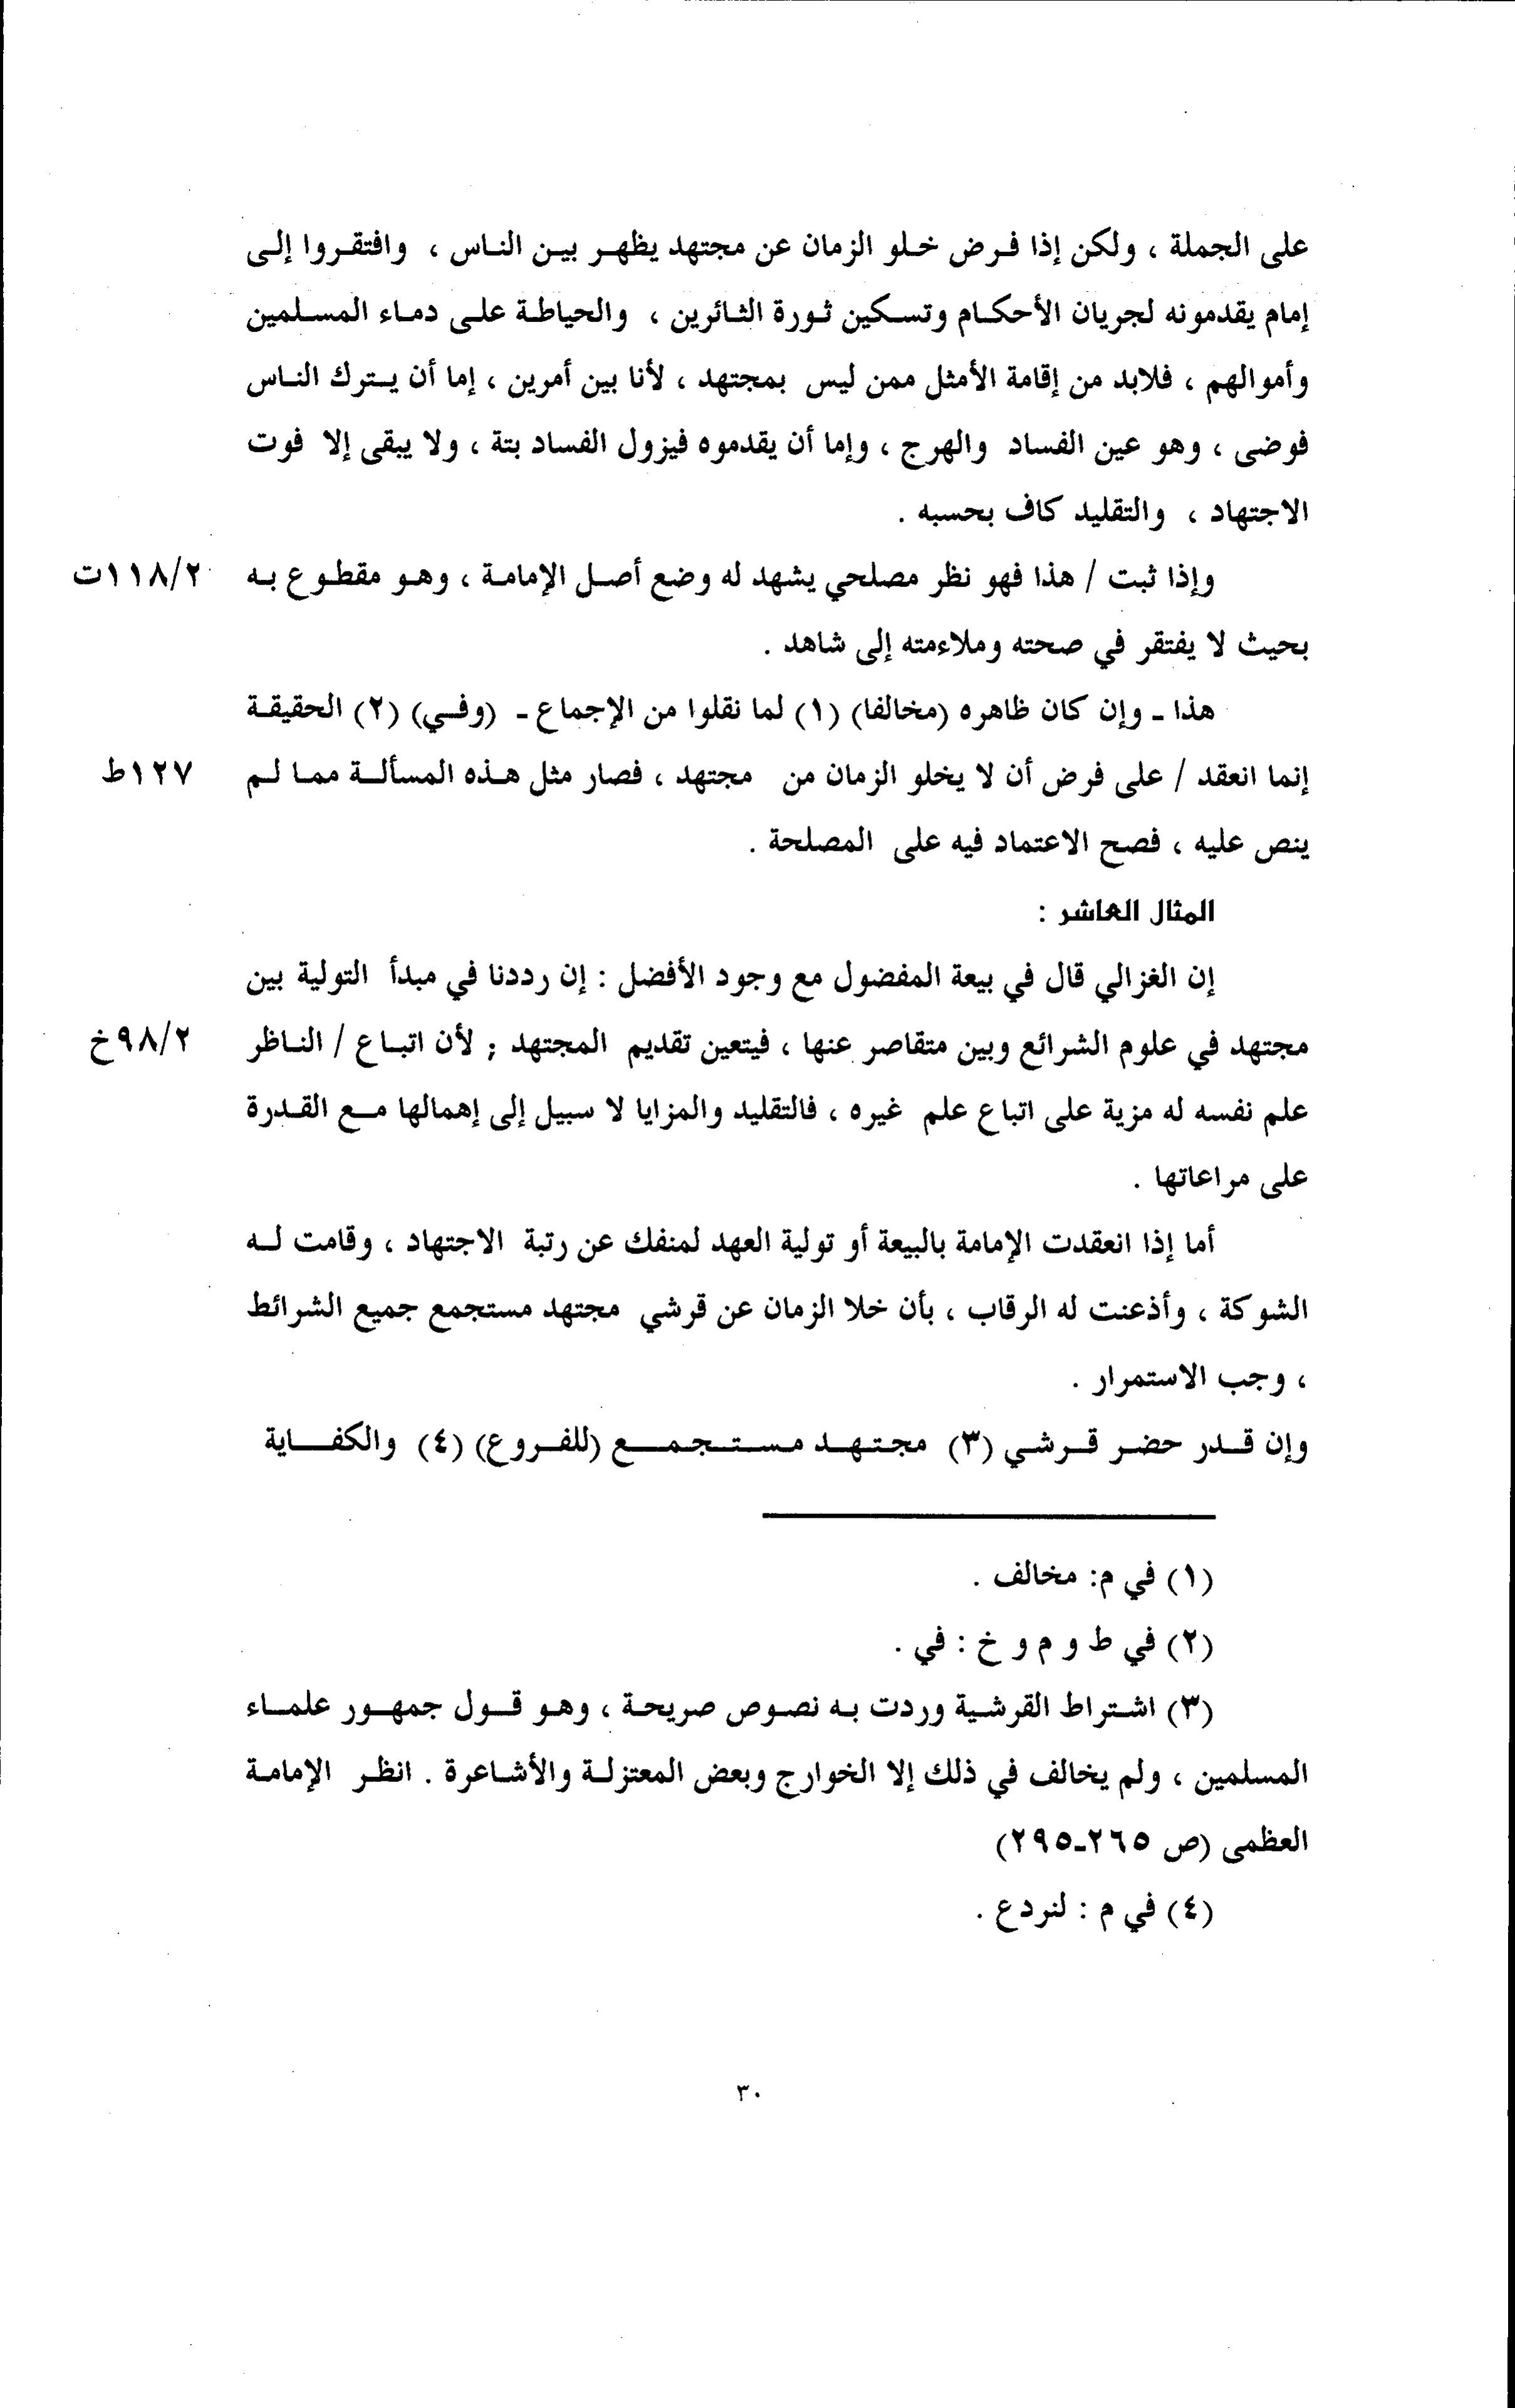 على الجملة ، ولكن إذا فرض خلو الزمان عن مجتهد يظهر بين الناس ، وافتقروا إلى
إمام يقدمونه لجريان الأحكام وتسكين ثورة الثائرين ، والحياطة على دماء المسلمين
وأموالهم ، فلابد من إقامة الأمثل ممن ليس بمجتهد ، لأنا بين أمرين ، إما أن يترك الناس
فوضى ، وهو عين الفساد والهرج ، وإما أن يقدموه فيزول الفساد بتة ، ولا يبقى إلا فوت
الاجتهاد ، والتقليد كاف بحسبه .
وإذا ثبت / هذا فهو نظر مصلحي يشهد له وضع أصل الإمامة ، وهو مقطوع به ١١٨/٢ت
بحيث لا يفتقر في صحته وملاءمته إلى شاهد .
هذا - وإن كان ظاهره (مخالفا) (١) لما نقلوا من الإجماع - (وفي) (٢) الحقيقة
إنما انعقد / على فرض أن لا يخلو الزمان من مجتهد ، فصار مثل هذه المسألة مما لم ١٢٧ط
ينص عليه ، فصح الاعتماد فيه على المصلحة .
المثال العاشر :
إن الغزالي قال في بيعة المفضول مع وجود الأفضل : إن رددنا في مبدأ التولية بين
مجتهد في علوم الشرائع وبين متقاصر عنها ، فيتعين تقديم المجتهد ; لأن اتباع / الناظر ٩٨/٢خ
علم نفسه له مزية على اتباع علم غيره ، فالتقليد والمزايا لا سبيل إلى إهمالها مع القدرة
على مراعاتها .
أما إذا انعقدت الإمامة بالبيعة أو تولية العهد لمنفك عن رتبة الاجتهاد ، وقامت له
الشوكة ، وأذعنت له الرقاب ، بأن خلا الزمان عن قرشي مجتهد مستجمع جميع الشرائط
، وجب الاستمرار .
وإن قدر حضر قرشي (٣) مجتهد مستجمع (للفروع) (٤) والكفاية
(١) في م: مخالف .
(٢) في ط و م و خ : في .
(٣) اشتراط القرشية وردت به نصوص صريحة ، وهو قول جمهور علماء
المسلمين ، ولم يخالف في ذلك إلا الخوارج وبعض المعتزلة والأشاعرة . انظر الإمامة
العظمى (ص ٢٦٥-٢٩٥)
(٤) في م : لنردع .
٣٠